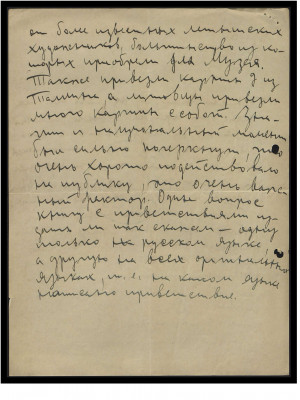 от более известных латышских
художников, большинство из ко-
торых приобрели для Музея.
Также привезли картин 7 из
Таллина а литовцы привезли
много картин с собой. Зна-
чит и национальный момент
был сильно подчеркнут, что
очень хорошо подействовало
на публику, это очень важ-
ный фактор. Один вопрос
книгу с приветствиями из-
дали так сказать – одну
только на русском языке,
а другую на всех оригинальных
языках, т. е. на каком языке
написано приветствие.